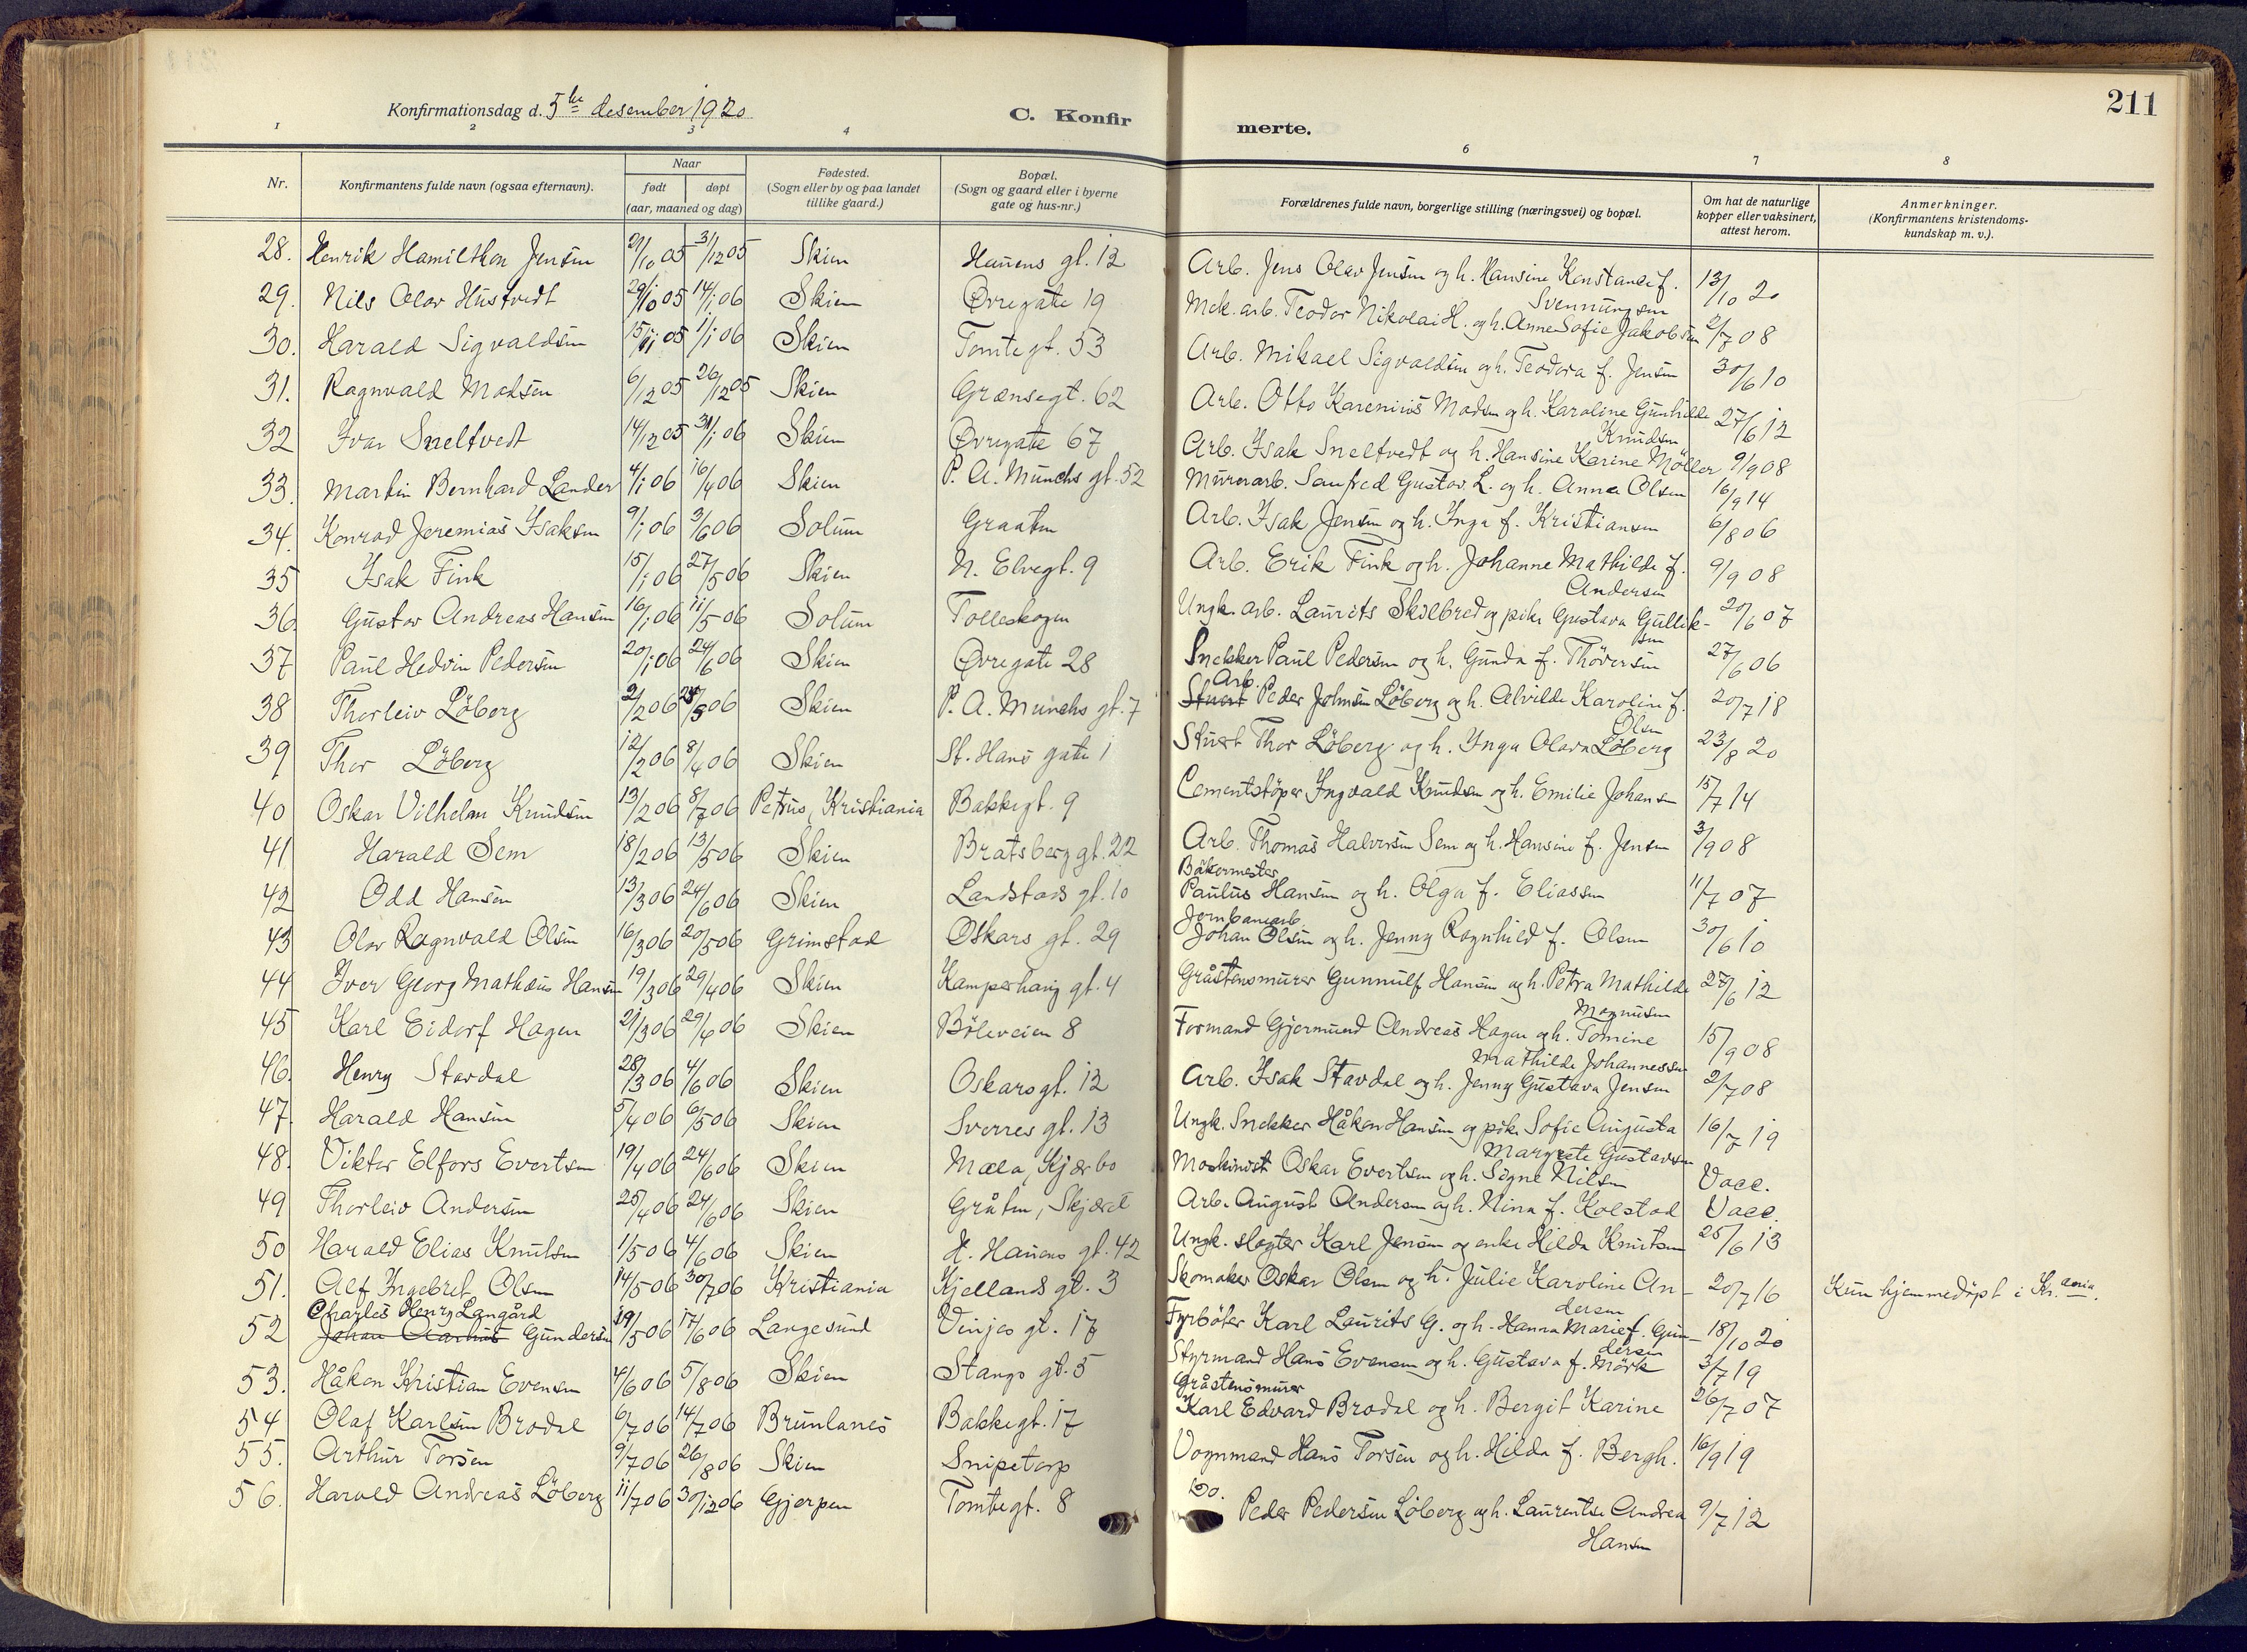 Konfirmationsdag d. 5te desember 1920
C. Konfirmerte.
211
1 2 3 4 6 7 8
Nr. Konfirmantens fulde navn (ogsaa efternavn). Naar født døpt (aar, maaned og dag) Fødested. (Sogn eller by og paa landet tillike gaard.) Bopæl. (Sogn og gaard eller i byerne gate og hus-nr.) Forældrenes fulde navn, borgerlige stilling (næringsvei) og bopæl. Om hat de naturlige kopper eller vaksinert, attest herom. Anmerkninger. (Konfirmantens kristendomskundskap m. v.).
28. Henrik Hamilthon Jensen 21/10 05 31/12 05 Skien Hauens gt. 12 Arb. Jens Olav Jensen og h. Hansine Konstanse f. Svennungsen 13/10 20
29. Nils Olav Hustvedt 29/10 05 14/1 06 Skien Øvregate 19 Mek. arb. Teodor Nikolai H. og h. Anne Sofie Jakobsen 2/7 08
30. Harald Sigvaldsen 15/11 05 1/1 06 Skien Tomtegt. 53 Arb. Mikael Sigvaldsen og h. Teodora f. Jensen 30/6 10
31. Ragnvald Madsen 6/12 05 26/12 05 Skien Grænsegt. 62 Arb. Otto Karenius Madsen og h. Karoline Gunhilde Knudsen 27/6 12
32 Ivar Sneltvedt 14/12 05 31/1 06 Skien Øvregate 67 Arb. Isak Sneltvedt og h. Hansine Karine Möller 9/9 08
33. Martin Bernhard Lander 4/1 06 16/4 06 Skien P. A. Munchs gt. 52 Murerarb. Sanfred Gustav L. og h. Anna Olsen 16/9 14
34. Konrad Jeremias Isaksen 9/1 06 3/6 06 Solum Graaten Arb. Isak Jensen og h. Inga f. Kristiansen 6/8 06
35 Isak Fink 15/1 06 27/5 06 Skien N. Elvegt. 9 Arb. Erik Fink og h. Johanne Mathilde f. Andersen 9/9 08
36. Gustav Andreas Hansen 16/1 06 11/5 06 Solum Tolleskogen Ungk. arb. Laurits Skilbred og pike Gustava Gulliksen 20/6 07
37 Paul Hedvin Pedersen 20/1 06 24/6 06 Skien Øvregate 28 Snekker Paul Pedersen og h. Gunda f. Thöversen 27/6 06
38 Thorleiv Löberg 2/2 06 /5 06 Skien P. A. Munchs gt. 7 Stuert Arb. Peder Johnsen Löberg og h. Alvilde Karoline f. Olsen 20/7 18
39 Thor Löberg 12/2 06 8/4 06 Skien St. Hans gate 1 Stuert Thor Löberg og h. Inga Olava Löberg 23/8 20
40 Oskar Vilhelm Knudsen 13/2 06 8/7 06 Petrus, Kristiania Bakkegt. 9 Cementstöper Ingvald Knudsen og h. Emilie Johansen 15/7 14
41 Harald Sem 18/2 06 13/5 06 Skien Bratsberg gt. 22 Arb. Thomas Halvorsen Sem og h. Hansine f. Jensen 3/9 08
42 Odd Hansen 13/3 06 24/6 06 Skien Landstads gt. 10 Bakermester Paulus Hansen og h. Olga f. Eliassen 11/7 07
43 Olav Ragnvald Olsen 16/3 06 20/5 06 Grimstad Oskars gt. 29 Jernbanearb. Johan Olsen og h. Jenny Ragnhild f. Olsen 30/6 10
44 Iver Georg Mathæus Hansen 19/3 06 29/4 06 Skien Kamperhaug gt. 4 Gråstensmurer Gunnulf Hansen og h. Petra Mathilde Magnusen 27/6 12
45 Karl Eidorf Hagen 21/3 06 29/4 06 Skien Böleveien 8 Formand Gjermund Andreas Hagen og h. Tomine Mathilde Johannessen 15/9 08
46. Henry Stavdal 28/3 06 4/6 06 Skien Oskarsgt. 12 Arb. Isak Stavdal og h. Jenny Gustava Jensen 2/7 08
47. Harald Hansen 5/4 06 6/5 06 Skien Sverres gt. 13 Ungk. Snekker Håkon Hansen og pike Sofie Augusta Margrete Gustavsen 16/7 19
48. Viktor Elfors Evertsen 19/4 06 24/6 06 Skien Mæla, Kjærbo Maskinist Oskar Evertsen og h. Signe Nilsen Vacc.
49 Thorleiv Andersen 25/4 06 24/6 06 Skien Gråten, Skjæret Arb. August Andersen og h. Nina f. Kolstad Vacc.
50 Harald Elias Knutsen 1/5 06 4/6 06 Skien H. Hauens gt. 42 Ungk. slagter Karl Jensen og enke Hilda Knutsen 25/6 13
51. Alf Ingebret Olsen 14/5 06 30/7 06 Kristiania Kjellands gt. 3 Skomaker Oskar Olsen og h. Julie Karoline Andersen 20/7 16 Kun hjemmedöpt i Kr.ania.
52 Charles Henry Langård Johan Gundersen 19/5 06 17/6 06 Langesund Vinjes gt. 17 Fyrböter Karl Laurits G. og h. Hanna Marie f. Gundersen 18/10 20
53. Håkon Kristian Evensen 4/6 06 5/8 06 Skien Stangs gt. 5 Styrmand Hans Evensen og h. Gustava f. Mörk 3/7 19
54 Olaf Karlsen Brodal 6/7 06 14/7 06 Brunlanes Bakkegt. 17 Gråstensmurer Karl Edvard Brodal og h. Bergit Karine 26/7 07
55. Arthur Torsen 9/7 06 26/8 06 Skien Snipetorp Vognmand Hans Torsen og h. Hilda f. Bergh. 16/9 19
56. Harald Andreas Löberg 11/7 06 30/12 06 Gjerpen Tomtegt. 8 Do. Peder Pedersen Löberg og h. Laurentse Andrea Hansen 9/7 12